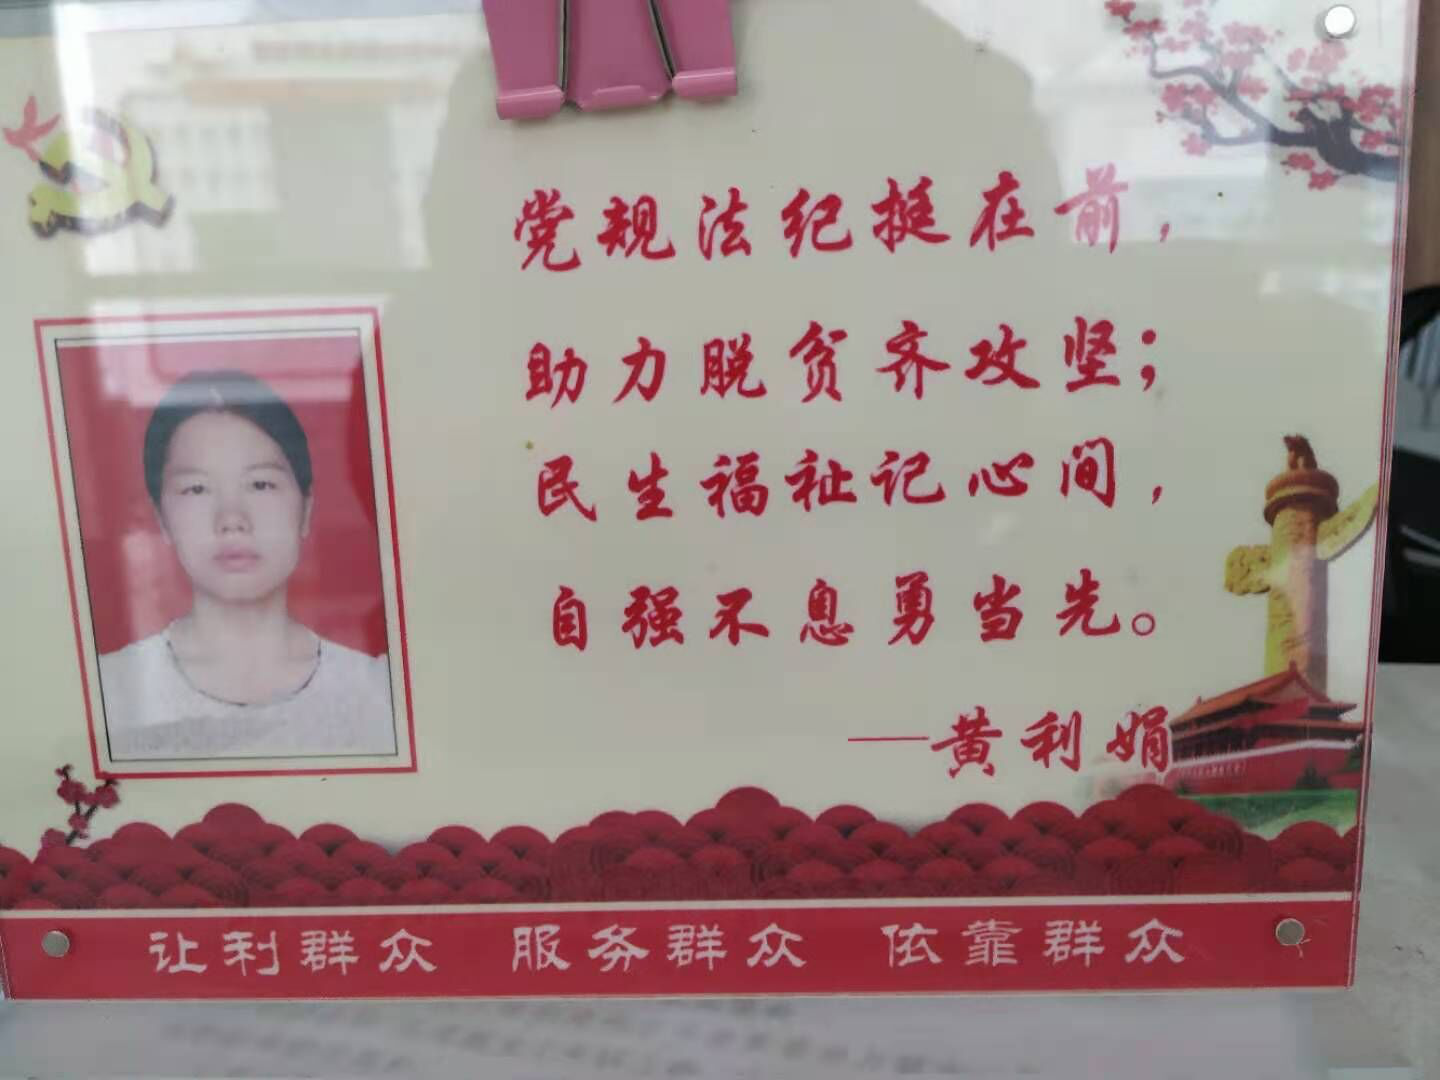 党规法纪挺在前，
助力脱贫齐攻坚；
民生福祉记心间，
自强不息勇当先。
——黄利娟
让利群众 服务群众 依靠群众